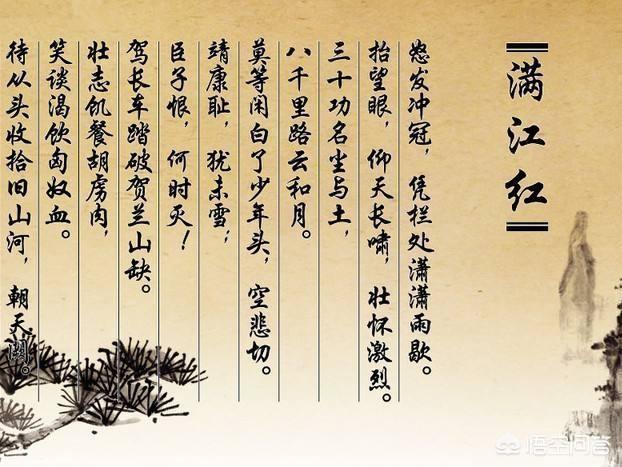 满江红
怒发冲冠，凭栏处潇潇雨歇。
抬望眼，仰天长啸，壮怀激烈。
三十功名尘与土，
八千里路云和月。
莫等闲白了少年头，空悲切。
靖康耻，犹未雪；
臣子恨，何时灭！
驾长车踏破贺兰山缺。
壮志饥餐胡虏肉，
笑谈渴饮匈奴血。
待从头收拾旧山河，朝天阙。
悟空问答